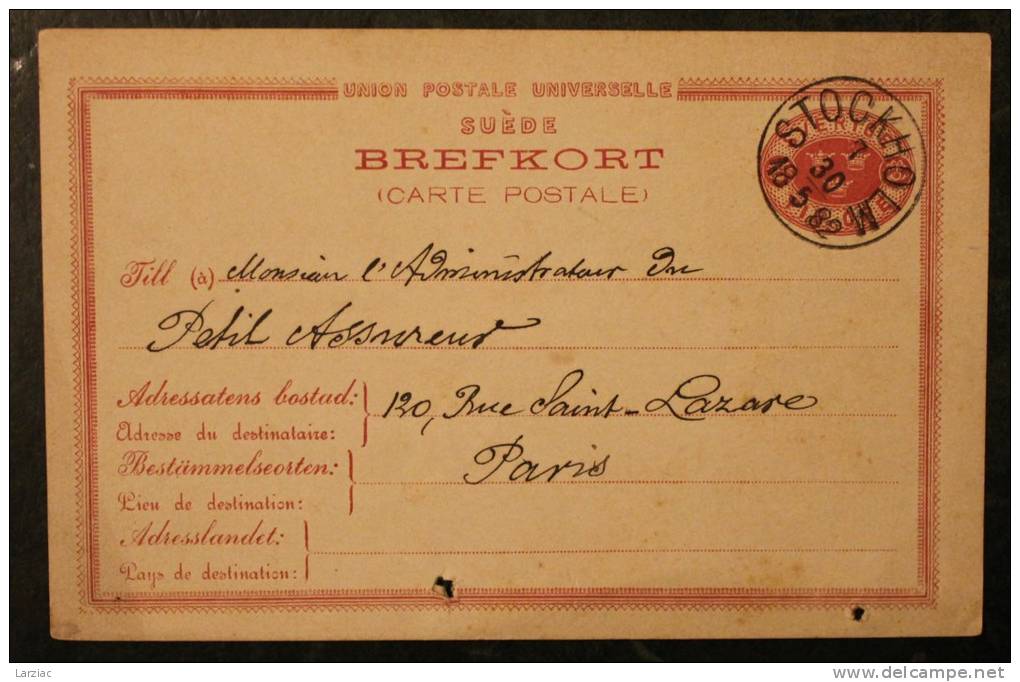 UNION POSTALE UNIVERSELLE
SUÈDE
BREFKORT
(CARTE POSTALE)
STOCKHOLM
7
30
18 5 82
Till (à) Monsieur l'Administrateur du
Petit Assureur
Adressatens bostad:
Adresse du destinataire:
120, Rue Saint-Lazare
Bestämmelseorten:
Lieu de destination:
Paris
Adresslandet:
Pays de destination:
Larziac
delcampe.net